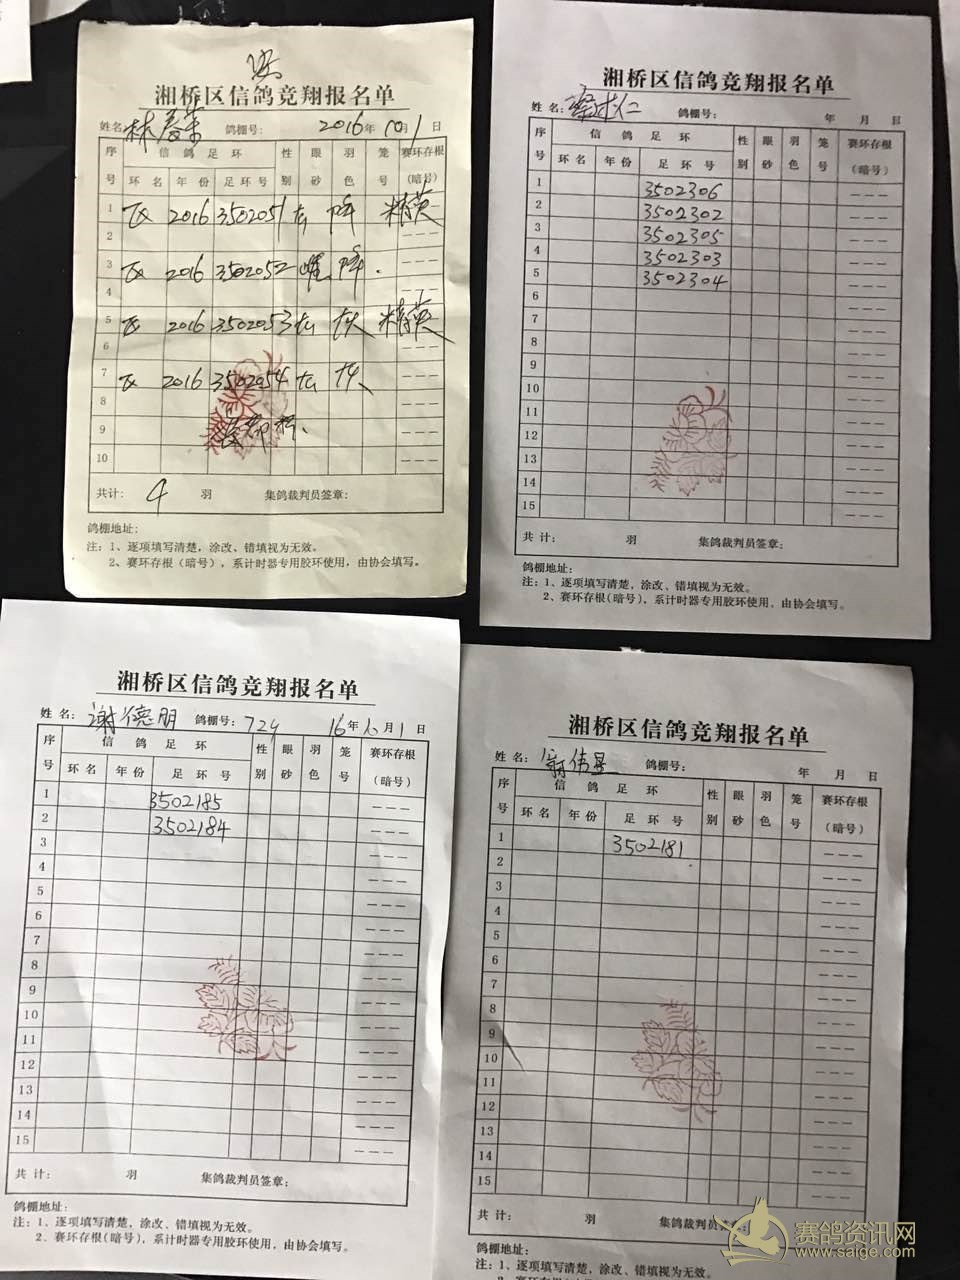 湘桥区信鸽竞翔报名单
姓名: 林 鸽棚号: 2016年 10月 1日
序号 信鸽足环 性别 眼砂 羽色 笼号 赛环存根(暗号)
环名 年份 足环号
1 2016 3502051 精英 ---
2 ---
3 2016 3502052 ---
4 ---
5 2016 3502053 精英 ---
6 ---
7 2016 3502054 ---
8 ---
9 ---
10 ---
共计: 4 羽 集鸽裁判员签章:
鸽棚地址:
注:1、逐项填写清楚,涂改、错填视为无效。
2、赛环存根(暗号),系计时器专用胶环使用,由协会填写。
湘桥区信鸽竞翔报名单
姓名: 鸽棚号: 年 月 日
序号 信鸽足环 性别 眼砂 羽色 笼号 赛环存根(暗号)
环名 年份 足环号
1 3502306 ---
2 3502302 ---
3 3502305 ---
4 3502303 ---
5 3502304 ---
6 ---
7 ---
8 ---
9 ---
10 ---
11 ---
12 ---
13 ---
14 ---
15 ---
共计: 羽 集鸽裁判员签章:
鸽棚地址:
注:1、逐项填写清楚,涂改、错填视为无效。
2、赛环存根(暗号),系计时器专用胶环使用,由协会填写。
湘桥区信鸽竞翔报名单
姓名: 谢德朋 鸽棚号: 724 16年 10月 1日
序号 信鸽足环 性别 眼砂 羽色 笼号 赛环存根(暗号)
环名 年份 足环号
1 3502185 ---
2 3502184 ---
3 ---
4 ---
5 ---
6 ---
7 ---
8 ---
9 ---
10 ---
11 ---
12 ---
13 ---
14 ---
15 ---
共计: 羽 集鸽裁判员签章:
鸽棚地址:
注:1、逐项填写清楚,涂改、错填视为无效。
2、赛环存根(暗号),系计时器专用胶环使用,由协会填写。
湘桥区信鸽竞翔报名单
姓名: 鸽棚号: 年 月 日
序号 信鸽足环 性别 眼砂 羽色 笼号 赛环存根(暗号)
环名 年份 足环号
1 3502181 ---
2 ---
3 ---
4 ---
5 ---
6 ---
7 ---
8 ---
9 ---
10 ---
11 ---
12 ---
13 ---
14 ---
15 ---
共计: 羽 集鸽裁判员签
鸽棚地址:
注:1、逐项填写清楚,涂改、错填视为无效。
2、赛环存根(暗号),系计时器专用胶环使用,由协会填写。
赛鸽资讯网
www.saige.com